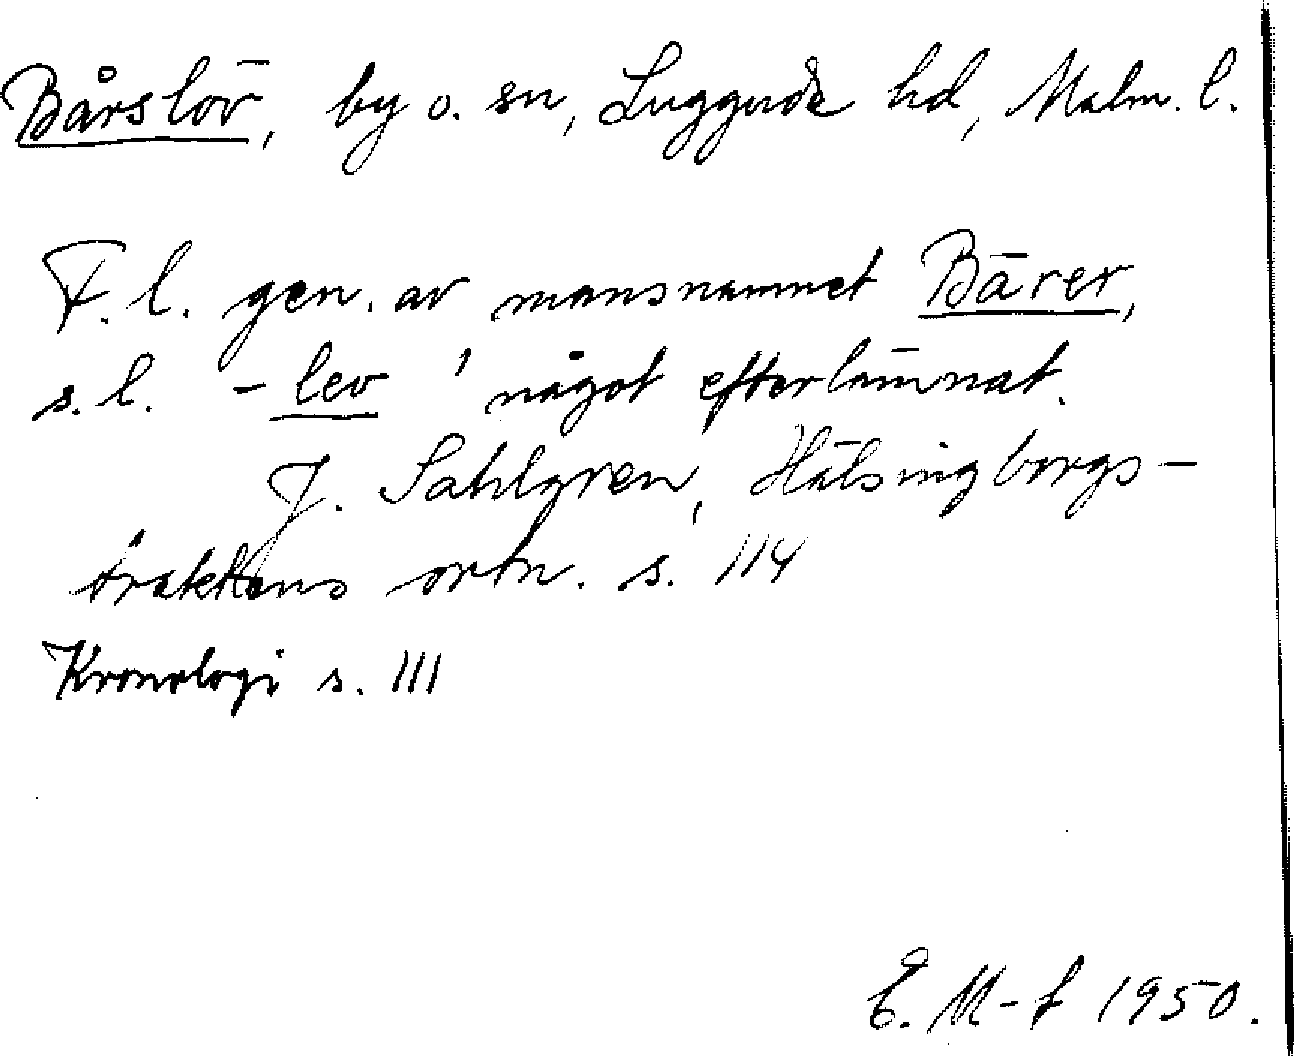 Bårslöv, by o. sn, Luggude hd, Malm. l.
F. l. gen. av mansnamnet Bärer,
s. l. -lev 'något efterlämnat.
J. Sahlgren, Hälsingborgs-
traktens ortn. s. 114
Kronologi s. 111
E. M-f 1950.